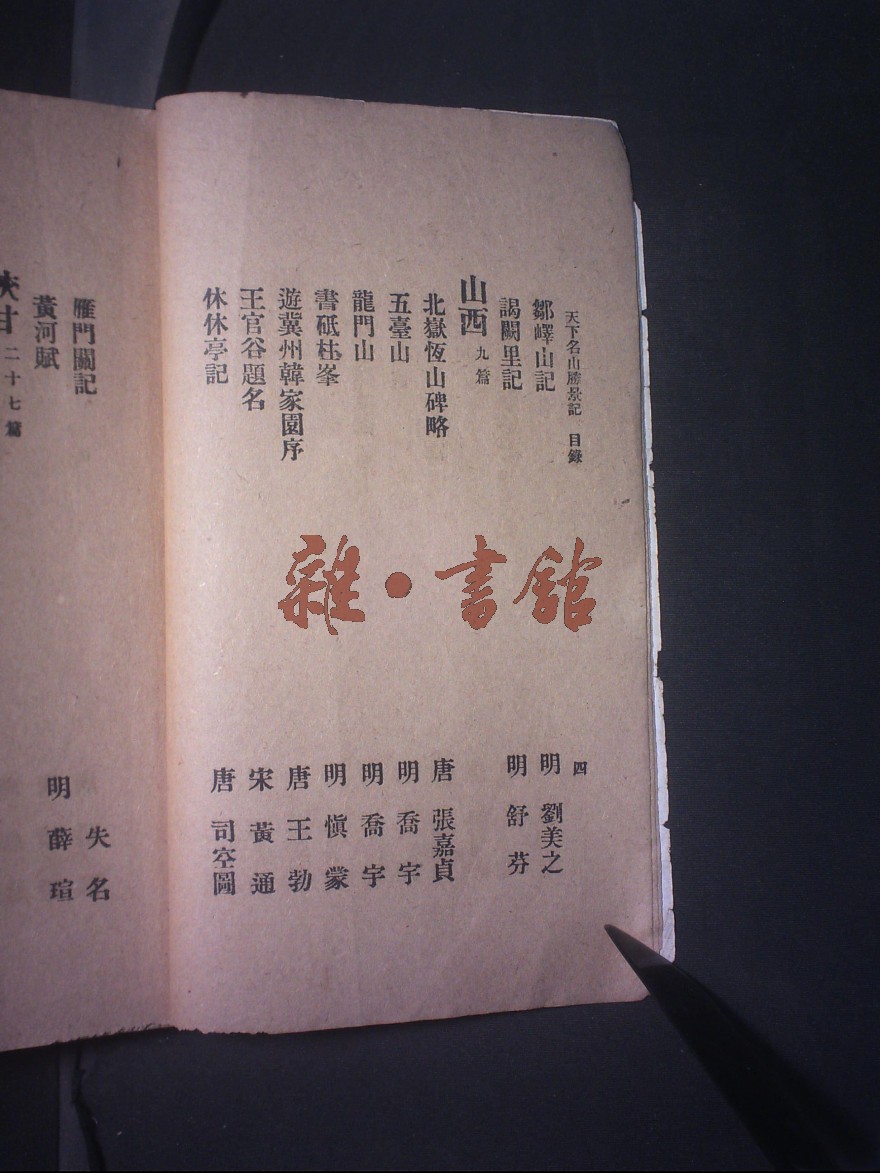 天下名山勝景記 目錄 四
鄒嶧山記 明 劉美之
謁闕里記 明 舒芬
山西 九篇
北嶽恆山碑略 唐 張嘉貞
五臺山 明 喬宇
龍門山 明 喬宇
書砥柱峯 明 愼蒙
遊冀州韓家園序 唐 王勃
王官谷題名 宋 黃通
休休亭記 唐 司空圖
雁門關記 失名
黃河賦 明 薛瑄
陝甘 二十七篇
雜·書館